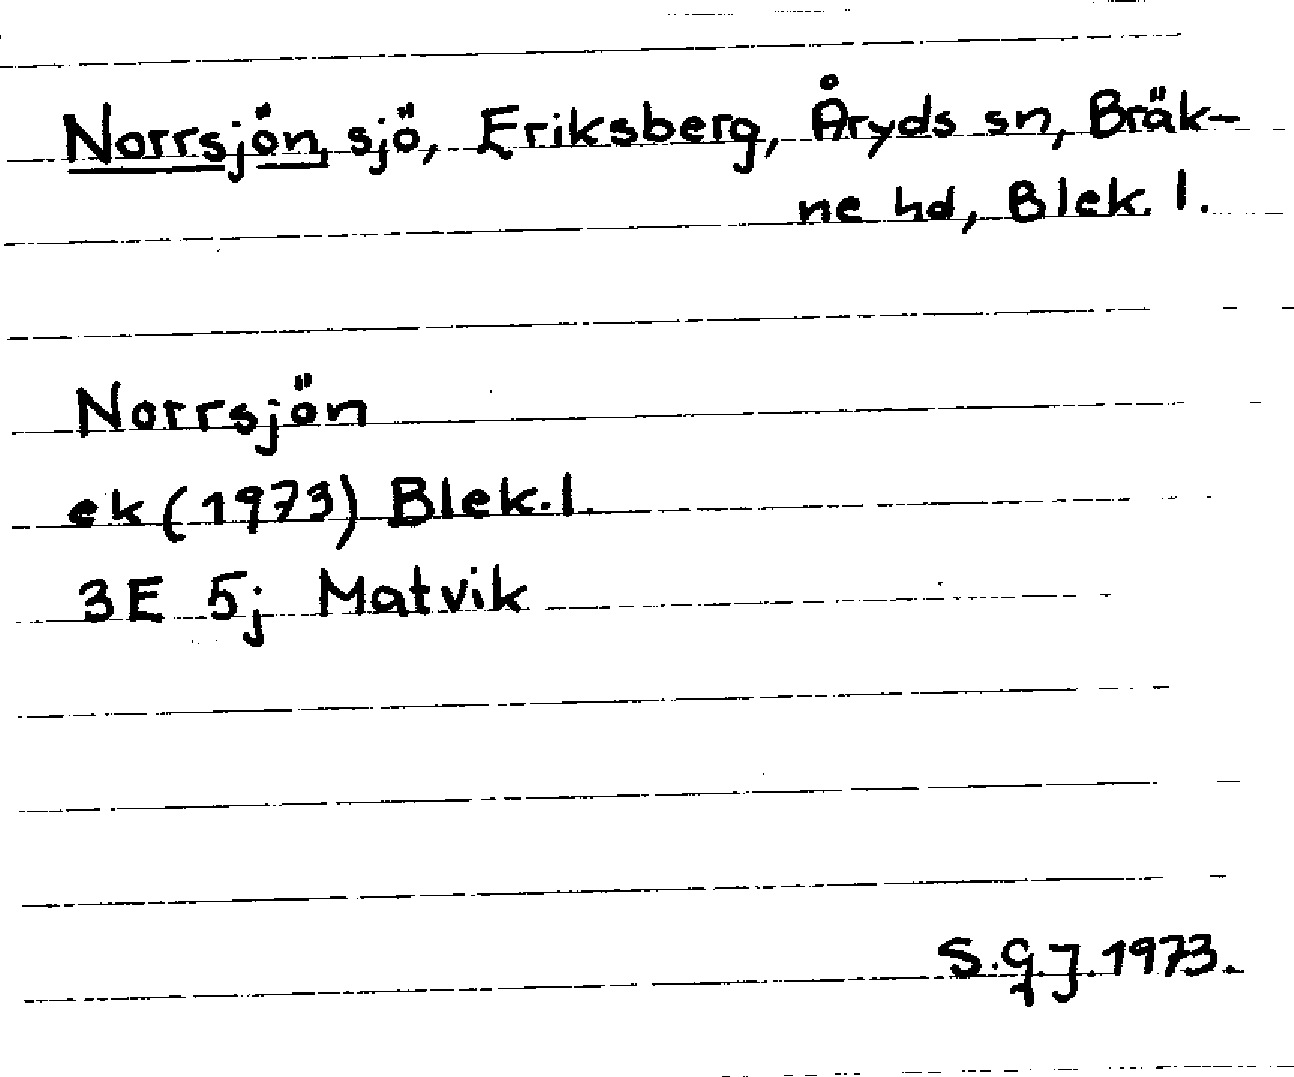 Norrsjön, sjö, Eriksberg, Åryds sn, Bräk-
ne hd, Blek. l.
Norrsjön
ek (1973) Blek. l.
3E 5j Matvik
S.G.J. 1973.